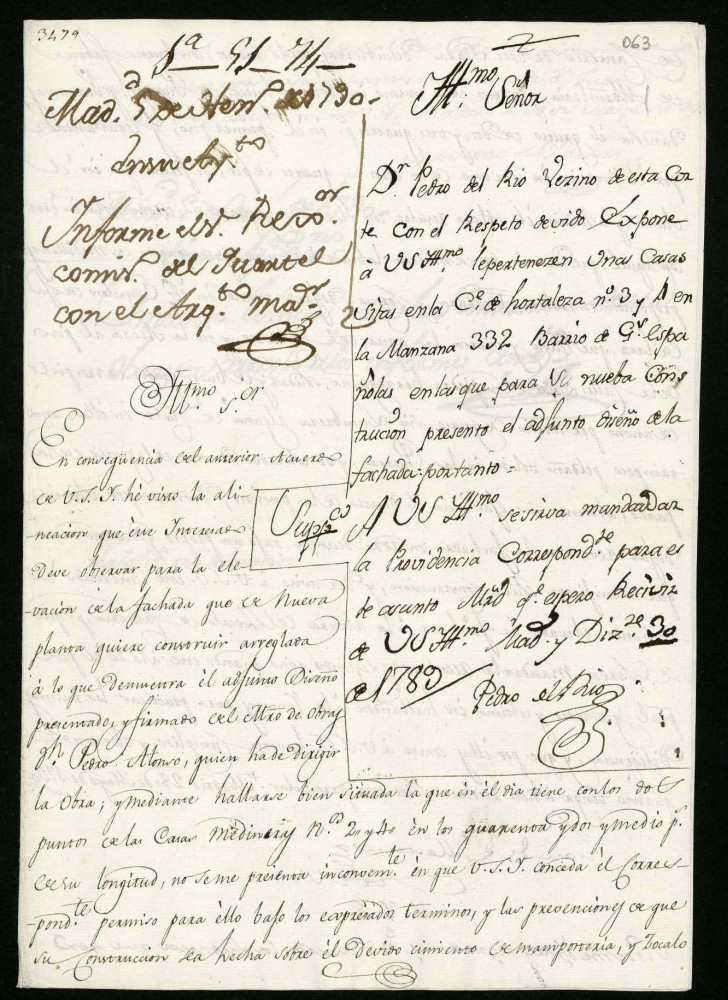 3479
063
1ª 51-74-
Mad.d 5 de Henº. de 1790.
En su Aytº
Informe el Sr. Rexor.
comisº. del Quartel
con el Arqto. mayr.
Ittmo. Señor
Dn. Pedro del Rio Vezino de esta Cor
te con el Respeto devido Expone
à VS Ittmo. lepertenezen Unas Casas
Sitas en la Ce. de hortaleza nº. 3 y 4 en
la Manzana 332 Barrio de Gs. Espa
ñolas en las que para Su nueba Cons
truccion presento el adjunto diseño de la
fachada = portanto =
Suppco
A VS Ittmo. se sirva mandar dar
la Providencia Correspondte. para es
te asunto Mrd qe. espero Recivir
de VS Ittmo. Mad. y Dize. 30
de 1789
Pedro del Rio
Ittmo. Sor.
En conseqüencia del anterior Acuerdo
de V.S.I. hè visto la ali-
neacion que ève Interesado
deve observar para la ele-
vación de la fachada que de Nueva
planta quiere construir arreglada
à lo que demuestra èl adjunto Diseño
presentado, y firmado del Mro de Obras
Dn. Pedro Alonso, quien ha de Dirigir
la Obra; y mediante hallarse bien situada la que èn èl dia tiene con los dos
puntos de las Casas Medineras Nos. 2 y 4 èn los quarenta y dos y medio ps.
de su longitud, no se me presenta inconvemte. èn que V.S.I. conceda èl Corres-
pondte. permiso para èllo bajo los expresados terminos, y las prevenciones de que
su Construccion sea hecha sobre èl Devido cimiento de mamposteria, y Zocalo